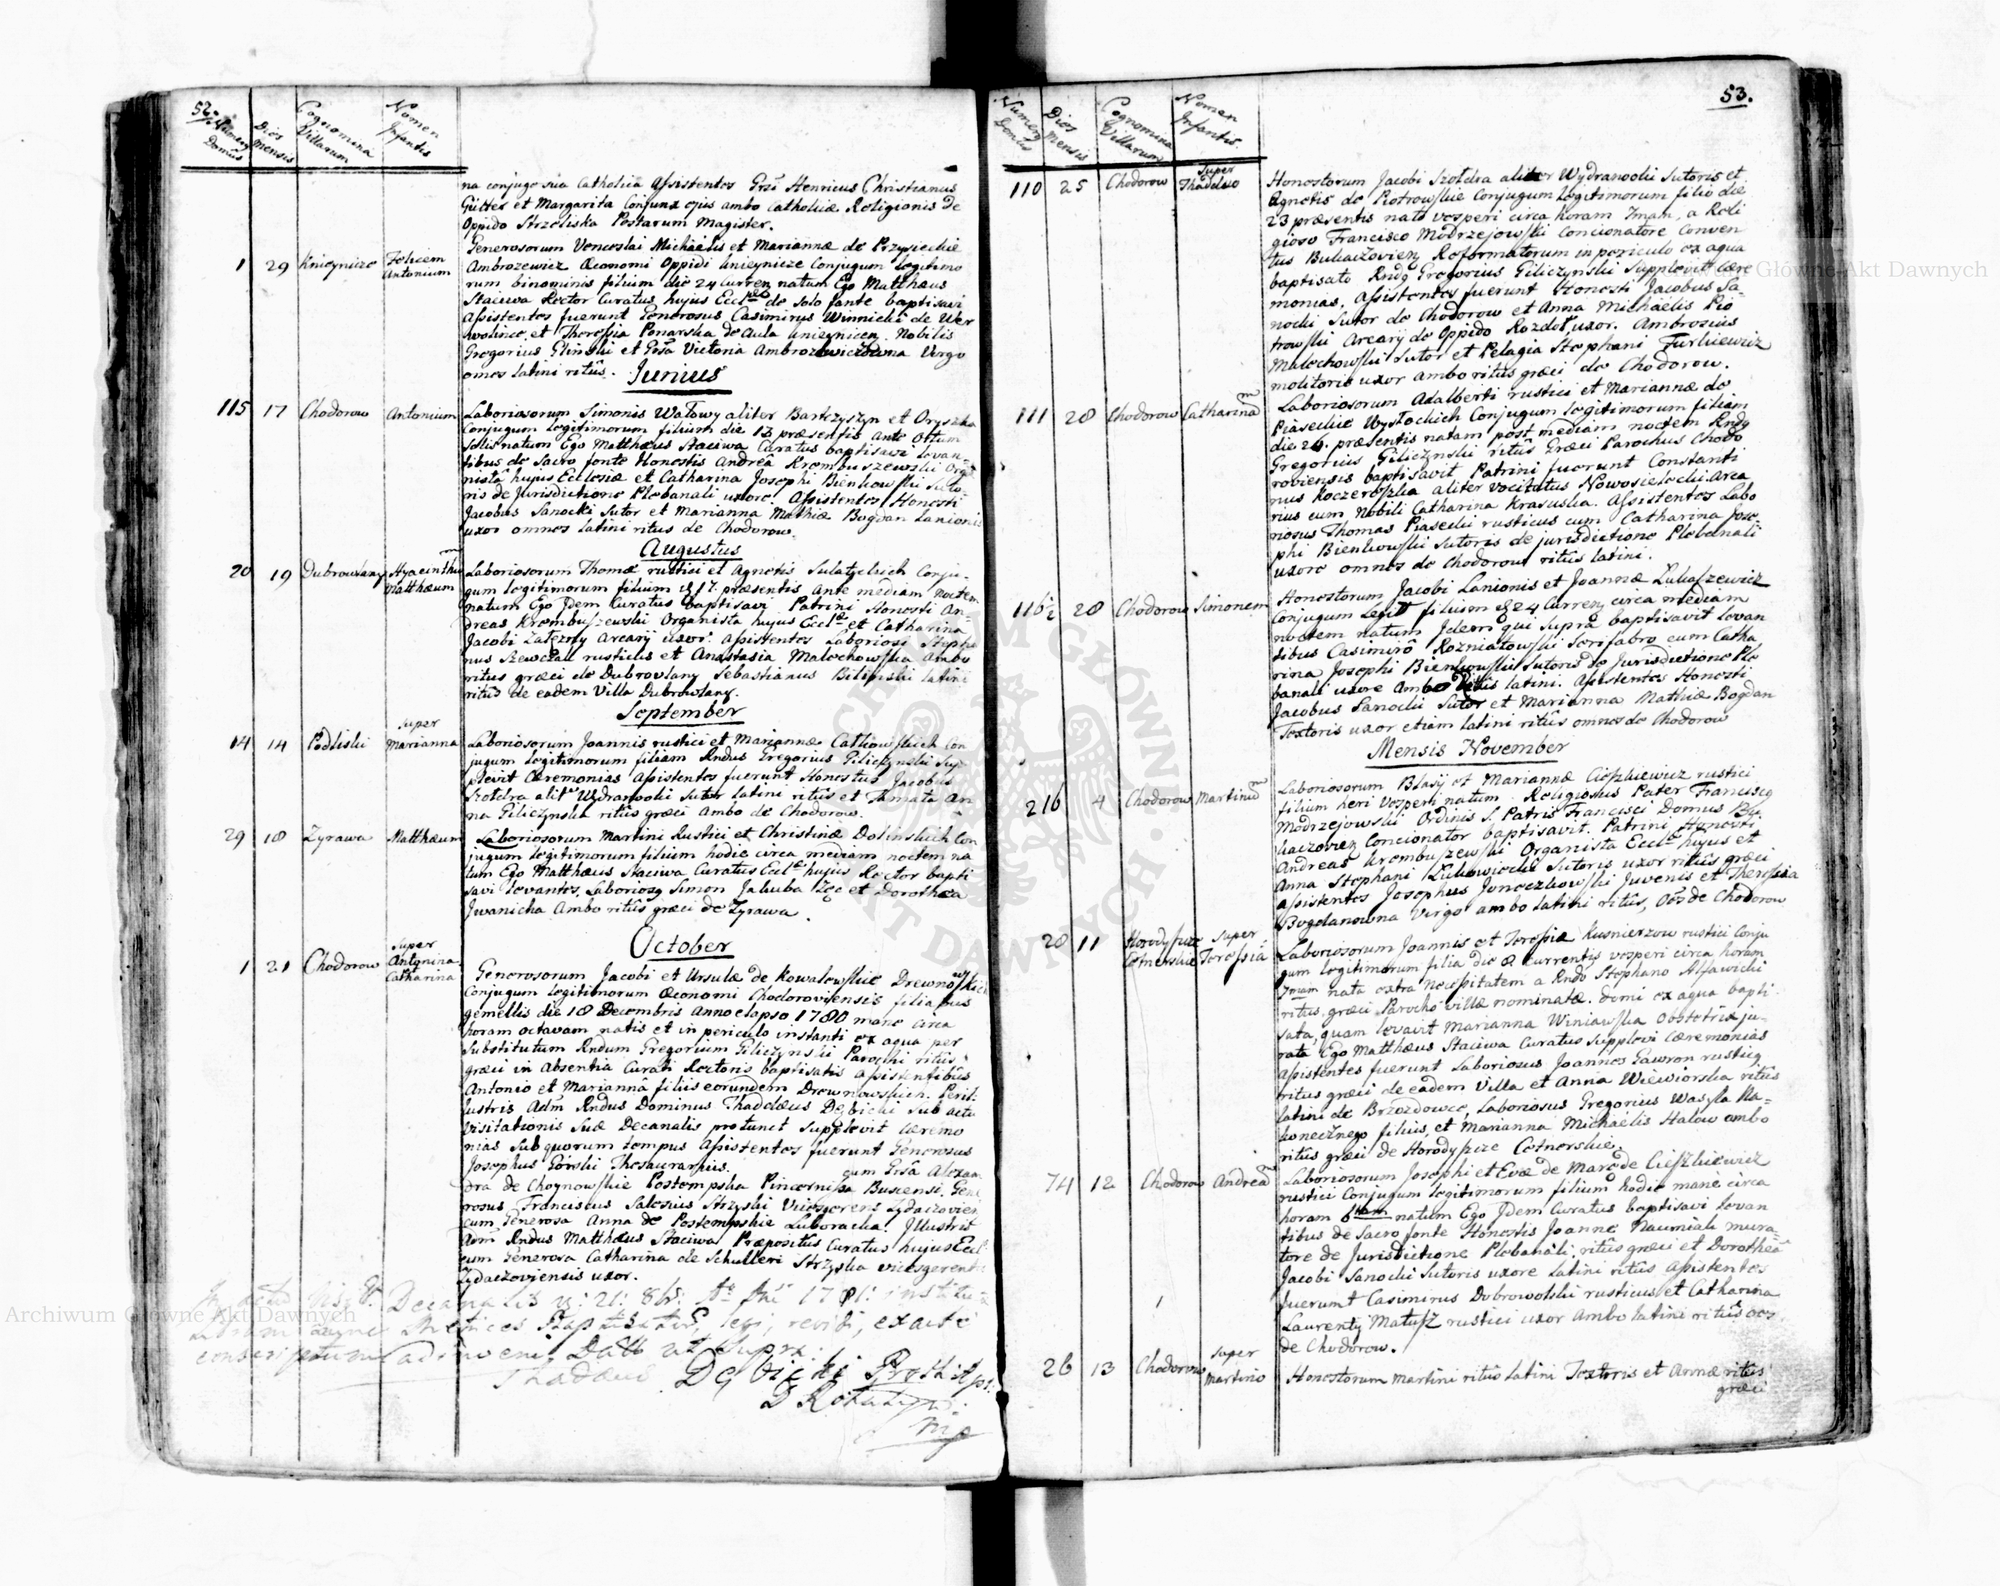 52.
Numerus Domûs
Dies Mensis
Cognomina Villarum
Nomen Infantis
na conjuge sua Catholica Assistentes Grsi Henricus Christianus
Gütter et Margarita Conjunx ejus ambo Catholicæ Religionis de
Oppido Strzeliska Postarum Magister.
1 29 Knieynicze Felicem Antonium
Generosorum Venceslai Michaelis et Mariannæ de Przysieckie
Ambrozewicz Œconomi Oppidi Knieynicze Conjugum legitimo
rum binominis filium die 24 curren natum Ego Matthæus
Staciwa Rector Curatus hujus Eccl de solo fonte baptisavi
Assistentes fuerunt Generosus Casimirus Winnicki de Wer
et Theressia Ponarska de Aula Knieynicen. Nobilis
Gregorius Glinski et Grsa Victoria Ambrozewiczowna Virgo
omes latini ritûs. Junius
115 17 Chodorow Antonium
Laboriosorum Simonis Watowy aliter Bartzyszyn et Oryszka
Conjugum legitimorum filium die 13 præsentis ante Ottum
Solis natum Ego Matthæus Staciwa Curatus baptisavi levan-
tibus de Sacro fonte Honestis Andreâ Krembuszewski Orga
nistâ hujus Ecclesiæ et Catharina Josephi Bienkowski Suto
ris de Jurisdictione Plebanali uxore. Assistentes Honesti
Jacobus Sanocki Sutor et Marianna Mathiæ Bogdan Lanionis
uxor omnes latini ritus de Chodorow.
Augustus
20 19 Dubrowlany Hyacinthu Matthæum
Laboriosorum Thomæ rustici et Agnetis Sulatyckich Conju-
gum legitimorum filium 17. præsentis Ante mediam Noctem
natum Ego Idem Curatus baptisavi Patrini Honesti An-
dreas Krembuszewski Organista hujus Eccl et Catharina
Jacobi Zalezny Arcarij uxor: Assistentes Laboriosi Stepha
nus Szewczuk rusticus et Anastasia Malochowska Ambo
ritus græci de Dubrowlany Sebastianus Bilinski latini
ritus de eadem Villa Dubrowlany.
September
14 14 Podliski super Marianna
Laboriosorum Joannis rustici et Mariannæ Catkowskich Con
jugum legitimorum filiam Rndus Gregorius Giliczynski Sup-
plevit Cæremonias Assistentes fuerunt Honestus Jacobus
Szoldra alit Wydranocki Sutor latini ritûs et Thmata An
na Giliczynska ritûs græci Ambo de Chodorow.
29 18 Zyrawa Matthæum
Laboriosorum Martini Rustici et Christinæ Dolinskich Con
jugum legitimorum filium hodie circa mediam noctem na
tum Ego Matthæus Staciwa Curatus Eccl hujus Rector bapti
savi levantes, Laboriosy Simon Jakuba Rzec et Dorothea
Iwanicha Ambo ritûs græci de Zyrawa.
October
1 21 Chodorow super Antonina Catharina
Generosorum Jacobi et Ursulæ de Kowalewskie Drewnowskich
Conjugum legitimorum Œconomi Chodoroviensis filiabus
gemellis die 18 Decembris anno elapso 1780 mane circa
horam octavam natis et in periculo instanti ex aqua per
Substitutum Rndum Gregorium Giliczynski Parochi ritûs
græci in absentia Curati Rectoris baptisatis Assistentibus
Antonio et Mariannâ filiis eorundem Drewnowskich. Peril-
lustris Adm Rndus Dominus Thaddæus Debicki Sub actu
visitationis Suæ Decanalis protunct Supplevit Cæremo
nias Sub quorum tempus Assistentes fuerunt Generosus
Josephus Gorski Thesaurarius. cum Grsâ Alexan
dra de Choynowskie Postempska Pincernissa Buscensi. Gene
rosus Franciscus Salesius Strzyski Vicesgerens Zydaczovien
cum Generosa Anna de Postempskie Luboracka. Illustris
Adm Rndus Matthæus Staciwa Præpositus Curatus hujus Eccl
cum Generosa Catharina de Schulleri Strzyska vicesgerenti
Zydaczoviensis uxor.
Decanalis 21: 8br: 1781:
Librum Metrices legi, revidi, exacte
conscriptum adinveni Datt ut Supra:
Thaddæus Debicki
53.
Numerus Domûs
Dies Mensis
Cognomina Villarum
Nomen Infantis.
110 25 Chodorow Super Thadeuo
Honestorum Jacobi Szoldra aliter Wydranocki Sutoris et
Agnetis de Piotrowskie Conjugum legitimorum filio die
23 præsentis nato vesperi circa horam 7mam, a Reli
gioso Francisco Modrzejowski Concionatore Conven
tus Bukaczovien Reformatorum in periculo ex aqua
baptisato Rndy Gregorius Giliczynski Supplevit Cære
monias. Assistentes fuerunt Honesti Jacobus Sa-
nocki Sutor de Chodorow et Anna Michaelis Pio
trowski Arcarij de Oppido Rozdol uxor. Ambrosius
Malochowski Sutor et Pelagia Stephani Turkiewicz
molitoris uxor ambo ritus græci de Chodorow.
111 28 Chodorow Catharina
Laboriosorum Adalberti rustici et Mariannæ de
Piaseckie Wysockich Conjugum legitimorum filiam
die 26. præsentis natam post mediam noctem Rndy
Gregorius Giliczynski ritûs Græci Parochus Chodo
roviensis baptisavit Patrini fuerunt Constanti
nus Koczerowska aliter vocitatus Nowosielecki Arca
rius cum Nobili Catharina Krasuska. Assistentes Labo
riosus Thomas Piasecki rusticus cum Catharina Jose
phi Bienkowski Sutoris de jurisdictione Plebanali
uxore omnes de Chodorow ritûs latini.
116½ 28 Chodorow Simonem
Honestorum Jacobi Lanionis et Joannæ Lukaszewicz
Conjugum Legitt filium 24 Curren circa mediam
noctem natum Idem qui Supra baptisavit levan
tibus Casimirô Rozniatowski Serifabro cum Catha
rina Josephi Bienkowski Sutoris de Jurisdictione Ple
banali uxore Ambo ritûs latini. Assistentes Honesti
Jacobus Sanocki Sutor et Marianna Mathiæ Bogdan
Textoris uxor etiam latini ritûs omnes de Chodorow
Mensis November
216 4 Chodorow Martinum
Laboriosorum Blasij et Mariannæ Cieszkiewicz rustici
filium heri Vesperi natum. Religiosus Pater Franciscy
Modrzejowski Ordinis S. Patris Francisci Domus Bu-
kaczovien Concionator baptisavit. Patrini Honesty
Andreas Krembuszewski Organista Eccl hujus et
Anna Stephani Lukowiecki Sutoris uxor ritûs græci
Assistentes Josephus Jeneczkowski Juvenis et Theressia
Bogdanowna Virgo ambo latini ritûs, Oes de Chodorow
20 11 Horodyszcze Cetnerskie super Teressia
Laboriosorum Joannis et Teressiæ Kusnierzow rustici Conju
gum legitimorum filia die 8 currentis vesperi circa horam
7mam nata extra necessitatem a Rndo Stephano Alsawicki
ritus græci Parocho villæ nominatæ. domi ex aqua bapti-
sata, quam levavit Marianna Winiawska Obstetrix ju-
rata Ego Matthæus Staciwa Curatus Supplevi Cæremonias
Assistentes fuerunt Laboriosus Joannes Gawron rusticy
ritus græci de eadem Villa et Anna Wiewiorska ritûs
latini de Brzozdowce, Laboriosus Gregorius Wasyla Na-
konecznego filius, et Marianna Michaelis Halow ambo
ritûs græci de Horodyszcze Cetnerskie.
74 12 Chodorow Andrea
Laboriosorum Josephi et Evæ de Marcode Cieszkiewicz
rustici Conjugum legitimorum filium hodie mane circa
horam 6tam natum Ego Idem Curatus baptisavi levan
tibus de Sacro fonte Honestis Joanne Naumiak mura-
tore de Jurisdictione Plebanali, ritûs græci et Dorothea
Jacobi Sanocki Sutoris uxore latini ritûs Assistentes
fuerunt Casimirus Dobrowolski rusticus et Catharina
Laurentij Matusz rustici uxor Ambo latini ritûs oes
de Chodorow.
26 13 Chodorow super Martino
Honestorum Martini ritûs latini Textoris et Annæ ritûs
græci
Archiwum Główne Akt Dawnych